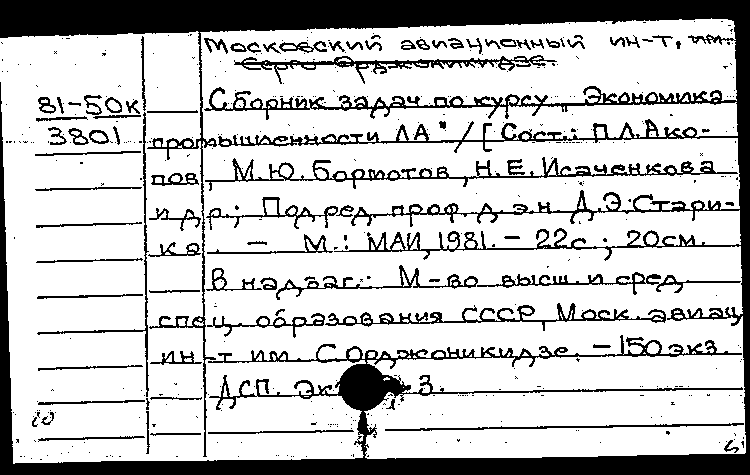 Московский авиационный ин-т, им.
Серго Орджоникидзе.
81-50к
3801
Сборник задач по курсу "Экономика
промышленности ЛА" / [Сост.: П.Л. Ако-
пов, М.Ю. Бормотов, Н.Е. Исаченкова
и др.; Под ред. проф. д.э.н. Д.Э. Стари-
ка. - М.: МАИ, 1981. - 22с; 20см.
В надзаг.: М-во высш. и сред.
спец. образования СССР, Моск. авиац.
ин-т им. С. Орджоникидзе. - 150 экз.
ДСП. Эк 3.